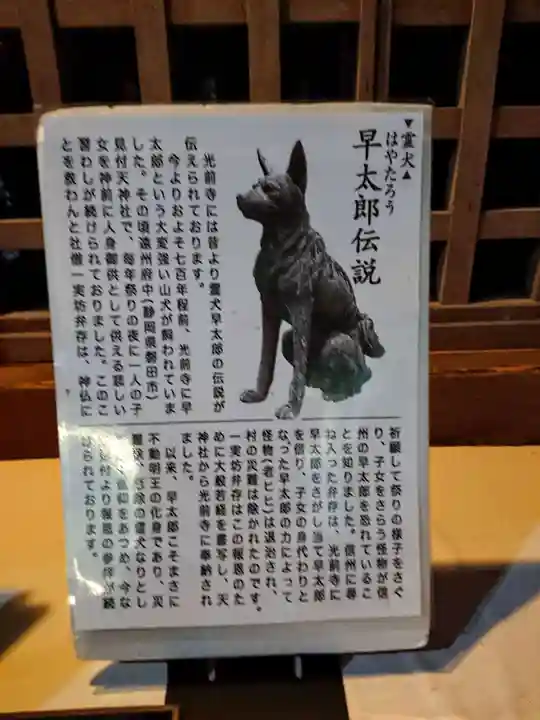 ▼霊犬▲
はやたろう
早太郎伝説
光前寺には昔より霊犬早太郎の伝説が
伝えられております。
今よりおよそ七百年程前、光前寺に早
太郎という大変強い山犬が飼われていま
した。その頃遠州府中(静岡県磐田市)
見付天神社で、毎年祭りの夜に一人の子
女を神前に人身御供として供える悲しい
習わしが続けられておりました。このこ
とを救わんと社僧一実坊弁存は、神仏に
祈願して祭りの様子をさぐ
り、子女をさらう怪物が信
州の早太郎を恐れているこ
とを知りました。信州に尋
ね入った弁存は、光前寺に
早太郎をさがし当て早太郎
を借り、子女の身代わりと
なった早太郎の力によって
怪物(老ヒヒ)は退治され、
村の災難は除かれたのです。
一実坊弁存はこの報恩のた
めに大般若経を書写し、天
神社から光前寺に奉納され
ました。
以来、早太郎こそまさに
不動明王の化身であり、災
難除、厄除の霊犬なりとし
信仰をあつめ、今な
より報恩の参拝が続
けられております。